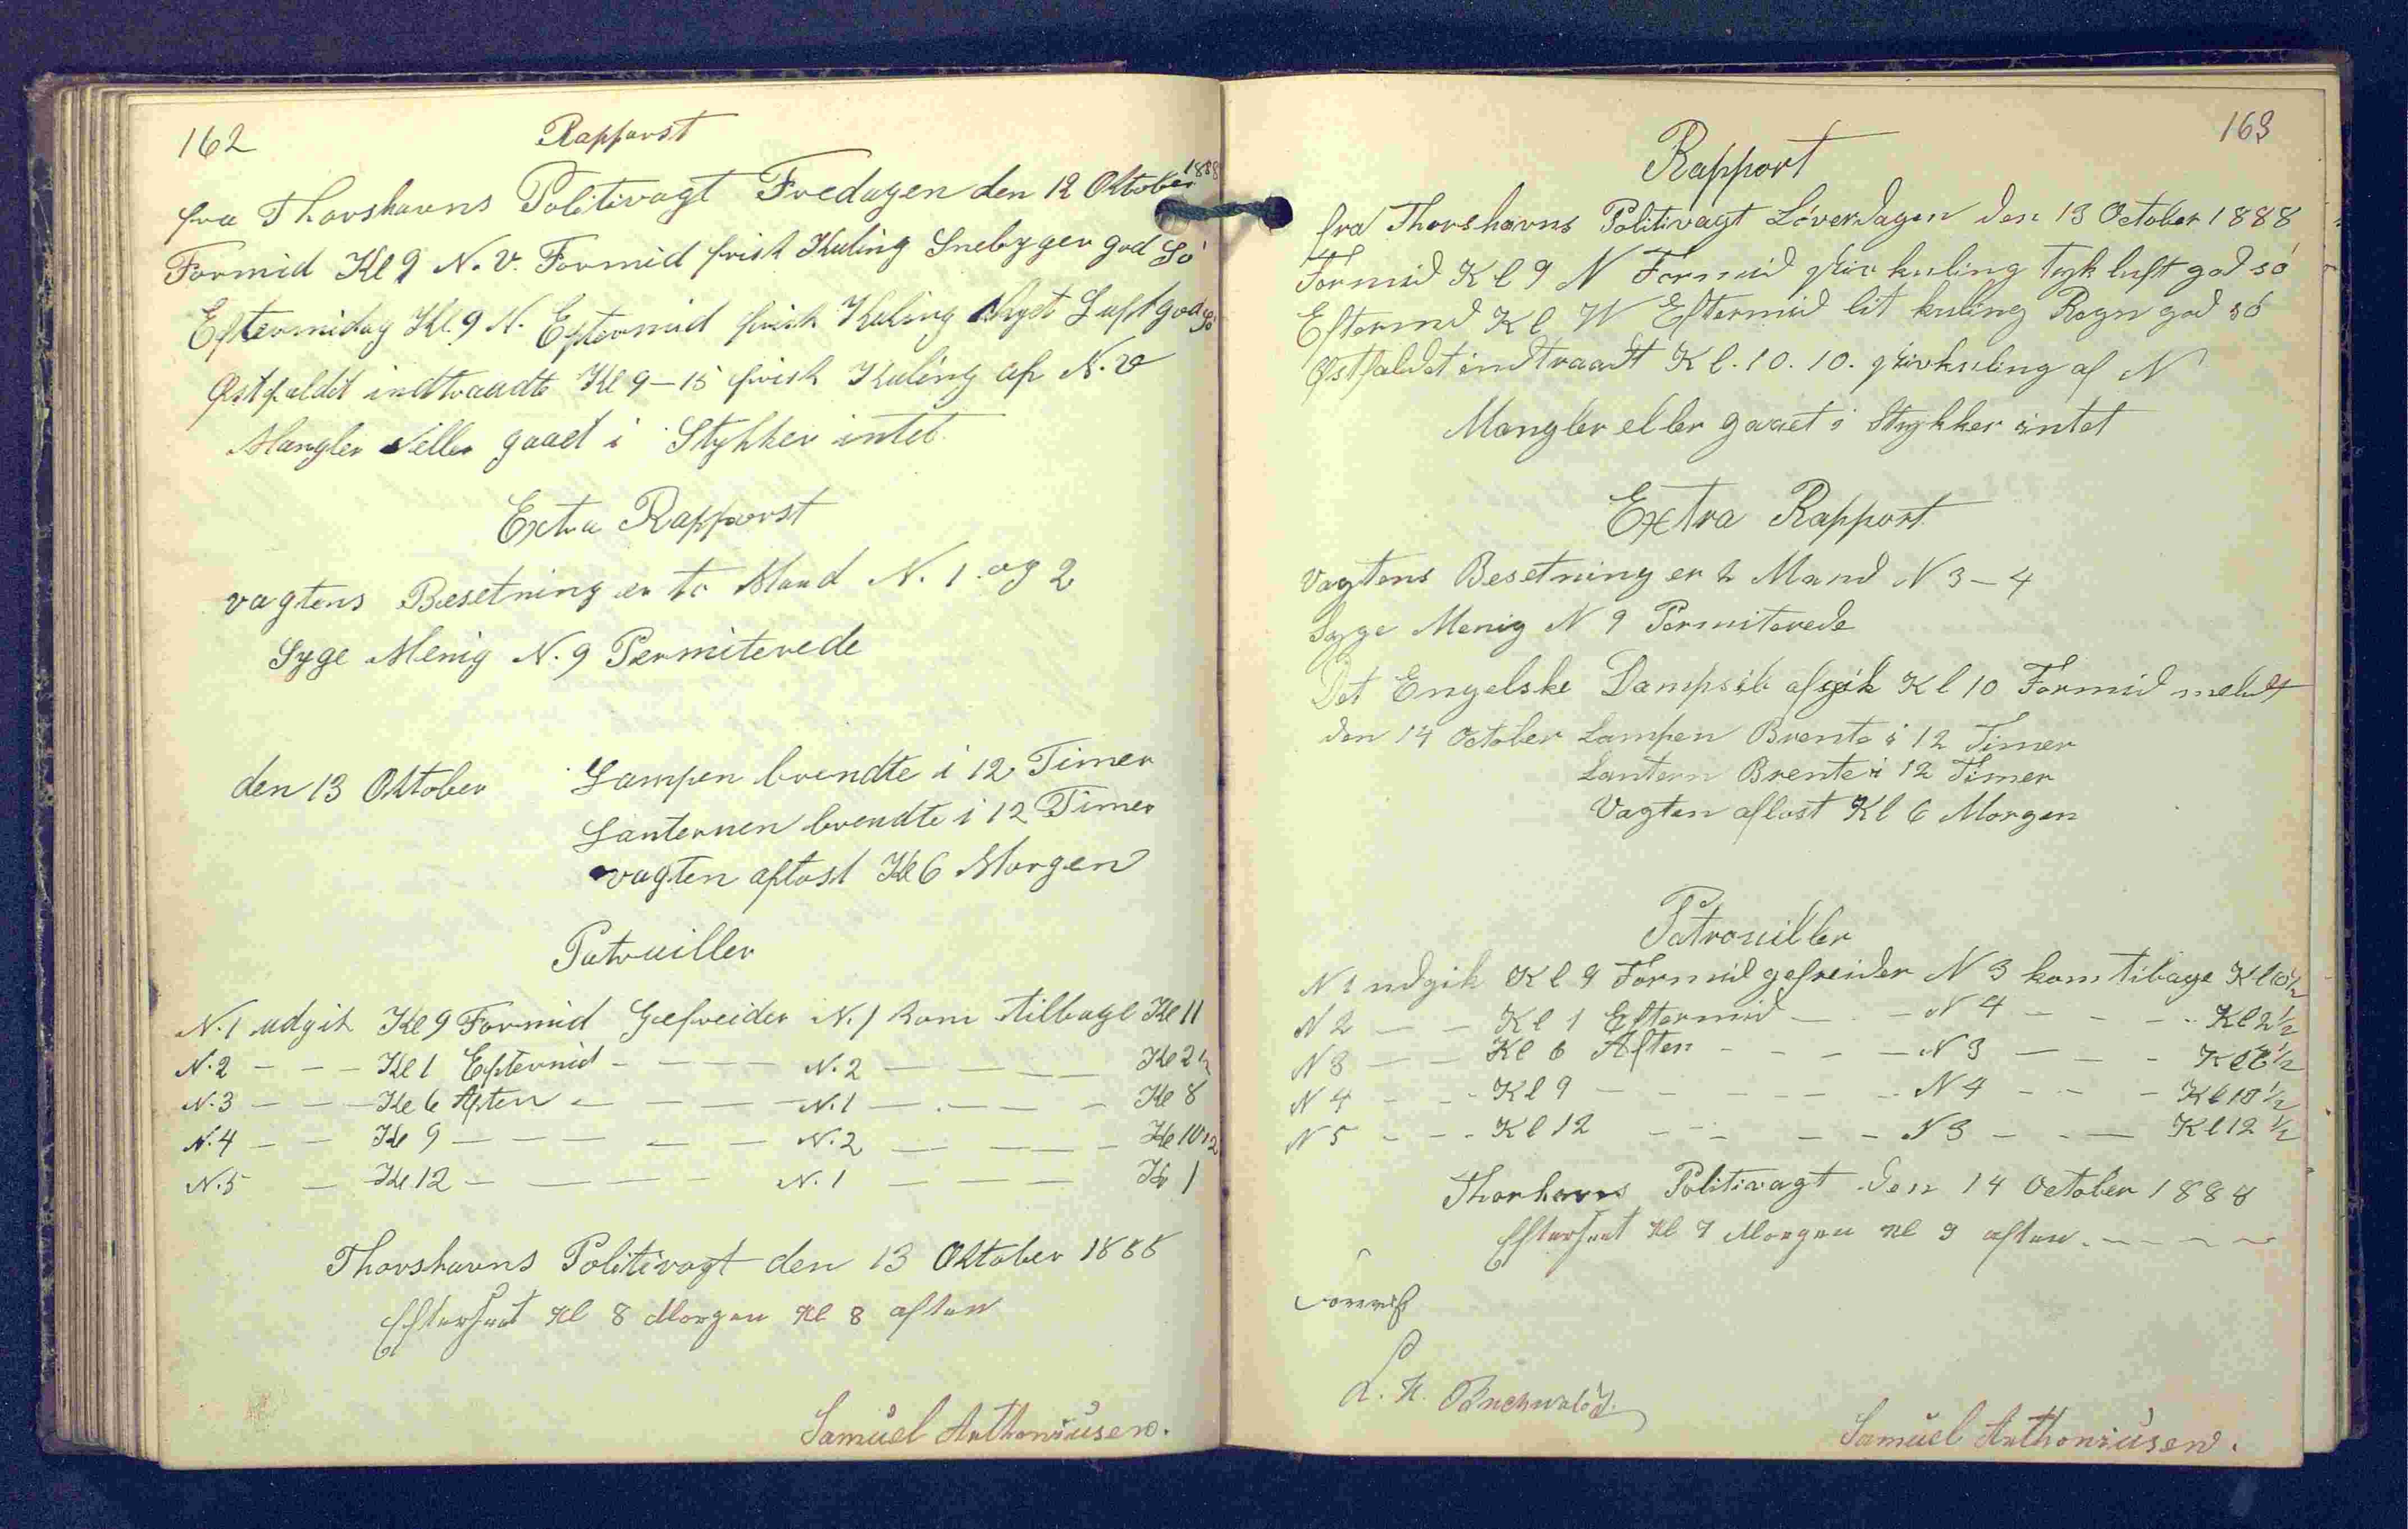 162
Rapporst
fra Thorshavns Politivagt Fredagen den 12 Oktober 1888
Formid Kl 9 N. V. Formid frisk Kuling Snebyger god Sö
Eftermidag Kl. 9 N. Eftermid frisk Kuling Luft god Sö
Østfaldet indtraadte Kl 9-15 frisk Kuling af N. V
Mangler eller gaaet i Stykker intet
Extra Rapporst
vagtens Besetning er to Mand N. 1 og 2
Syge Menig N. 9 Permiterede
den 13 Oktober Lampen brendte i 12 Timer
Lanternen brendte i 12 Timer
vagten aflost Kl 6 Morgen
Patruiller
N. 1 udgik Kl 9 Formid Gefreider N. 1 kom tilbage Kl 11
N. 2 - - - Kl 1 Eftermid - - - N. 2 - - - Kl 2 1/2
N. 3 - - - Kl 6 Aften - - - - N. 1 - - - - Kl 8
N. 4 - - Kl 9 - - - - N. 2 - - - - Kl 10 1/2
N. 5 - Kl. 12 - - - - N. 1 - - - Kl 1
Thorshavns Politivagt den 13 Oktober 1888
Efterseet Kl 8 Morgen Kl 8 aften
Samuel Anthoniusen.
163
Rapport
fra Thorshavns Politivagt Löverdagen den 13 October 1888
Formid Kl 9 N Formid kuling Tyk luft god só
Eftermd Kl W Eftermid lit kuling Regn god só
Østfaldet indtraadt Kl. 10. 10. af N
Mangler eller gaaet i Stykker intet
Extra Rapport
Vagtens Besetning er 2 Mand N 3-4
Syge Menig N 9 Permiterede
Det Engelske Dampsib afgik Kl 10 Formid meldt
den 14 October Lampen Brente i 12 Timer
Lantern Brente i 12 Timer
Vagten aflost Kl 6 Morgen
Patrouiller
N 1 udgik Kl 9 Formid gefreider N 3 kom tilbage Kl 10 1/2
N 2 - - Kl 1 Eftermid - - N 4 - - - Kl 2 1/2
N 3 - - Kl 6 Aften - - - - N 3 - - - Kl 1/2
N 4 - - - Kl 9 - - - - - N 4 - - - Kl 10 1/2
N 5 - - - Kl 12 - - - - N 3 - - - Kl 12 1/2
Thorhavns Politivagt den 14 October 1888
Efterseet Kl 7 Morgen Kl 9 aften - - - -
L. H. Buchwaldt.
Samuel Anthoniusen.